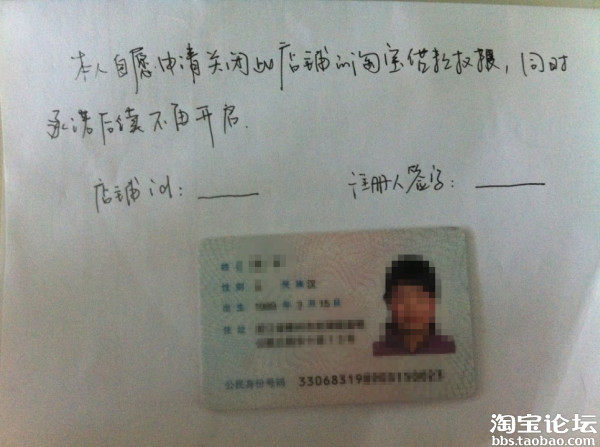 本人自愿申请关闭此店铺id淘宝借款权限，同时
承诺后续不再开启.
店铺id：____ 注册人签字：____
姓名
性别 民族汉
出生 年 月 15 日
住址
公民身份号码 33068319
淘宝论坛
bbs.taobao.com